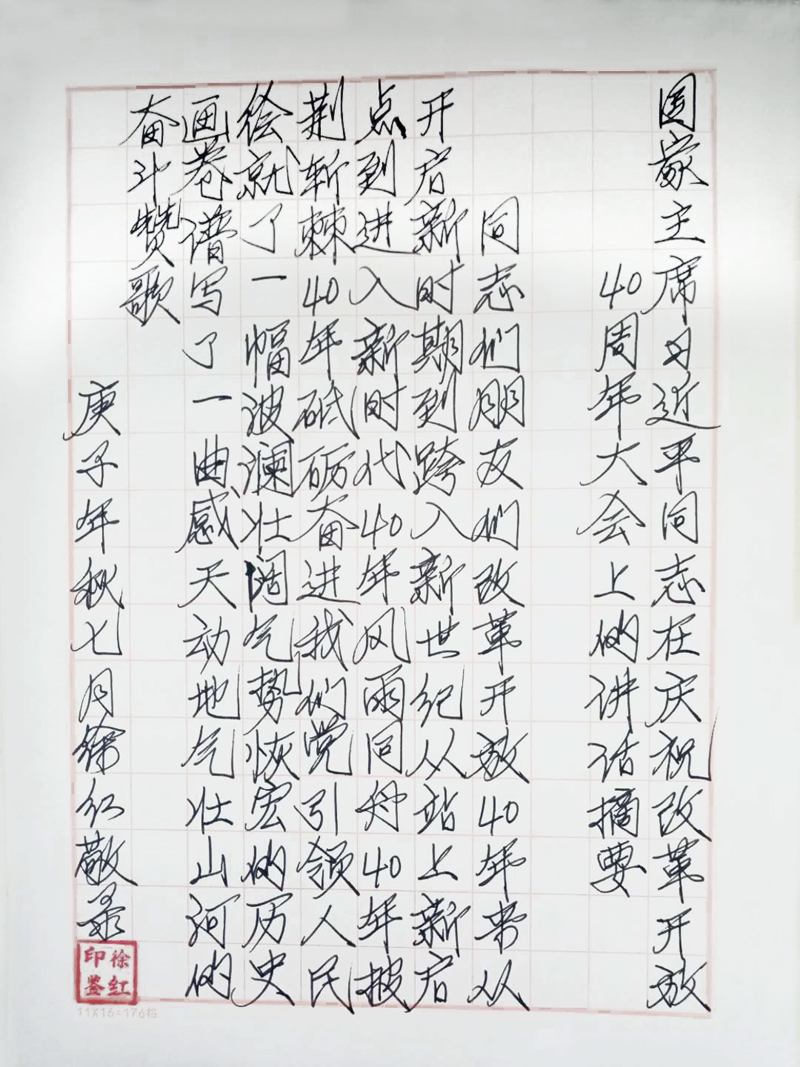 国家主席习近平同志在庆祝改革开放
40周年大会上的讲话摘要
同志们朋友们改革开放40年来从
开启新时期到跨入新世纪从站上新启
点到进入新时代40年风雨同舟40年披
荆斩棘40年砥砺奋进我们党引领人民
绘就了一幅波澜壮阔气势恢宏的历史
画卷谱写了一曲感天动地气壮山河的
奋斗赞歌
庚子年秋七月徐红敬录
徐红
印鉴
11X16=176格